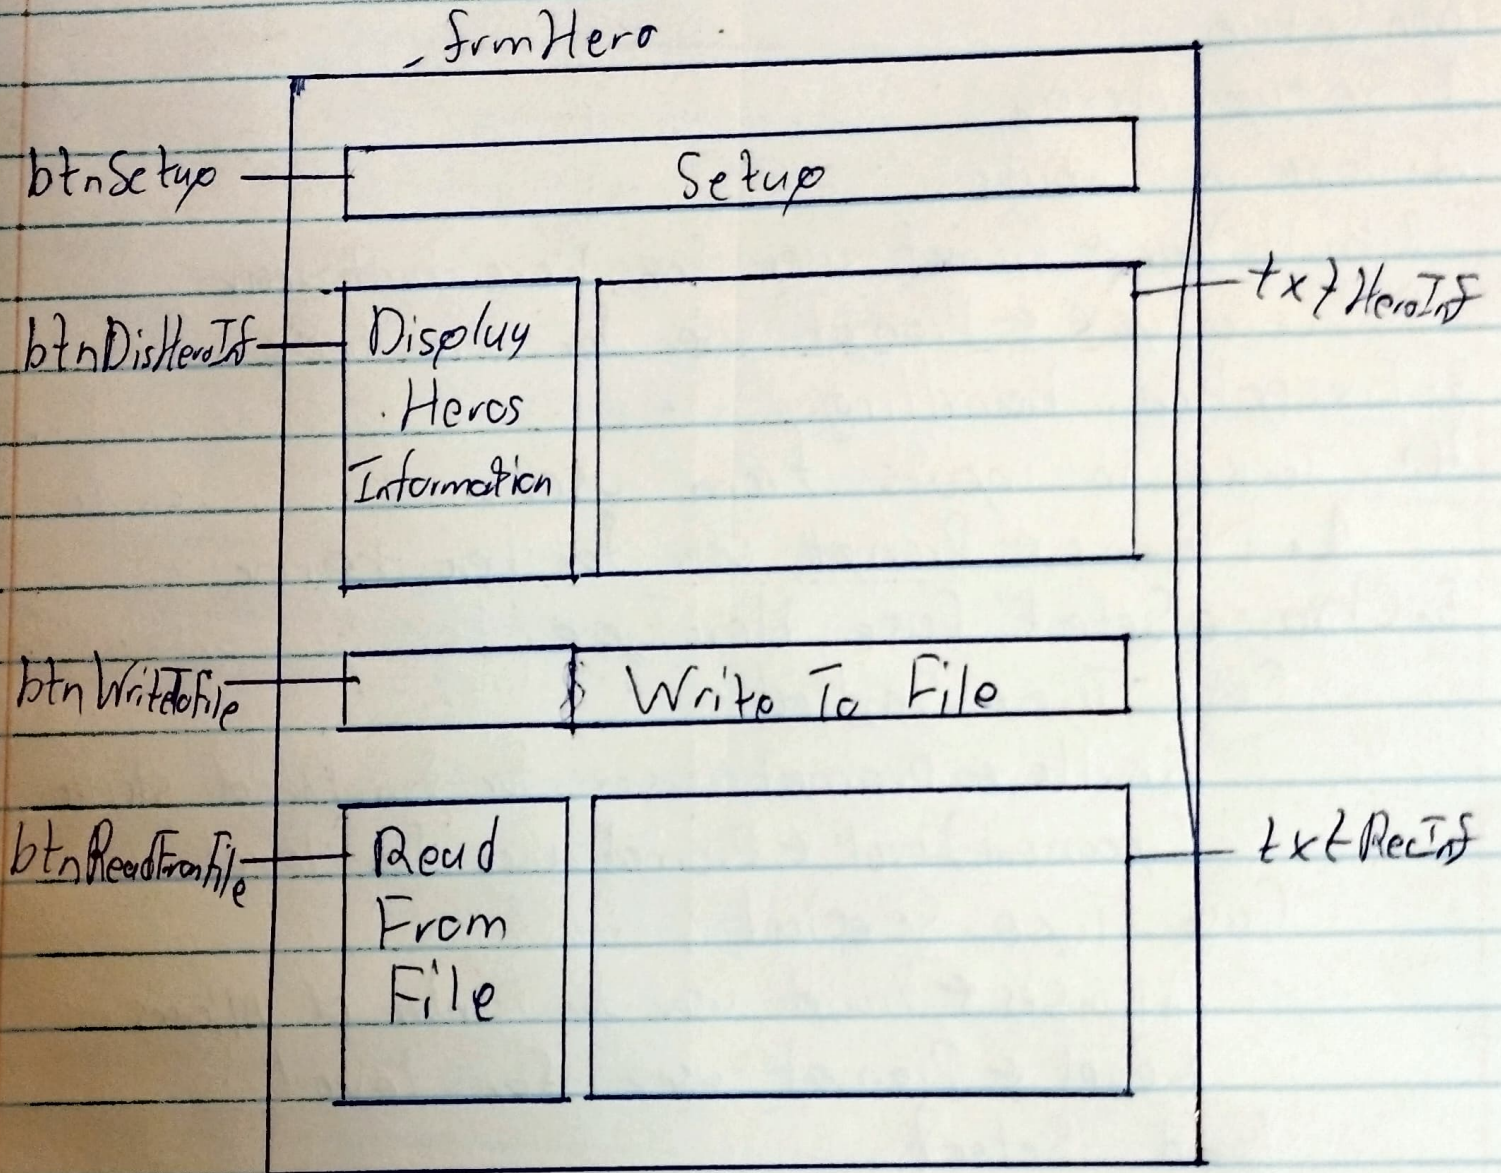 frmHero
btnSetup
Setup
txtHeroInf
btnDisHeroInf
Display
Heros
Information
btnWriteToFile
Write To File
btnReadFromFile
Read
From
File
txtRecInf